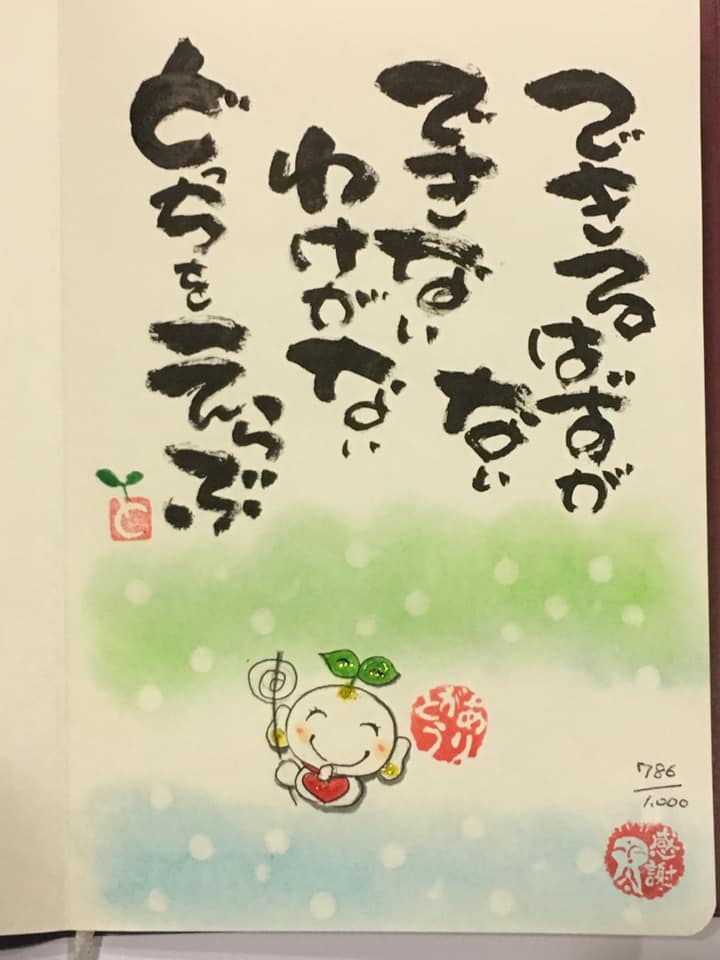 できるはずが
ない
できない
わけがない
どっちを
えらぶ
と
ありがとう
786
1.000
感謝